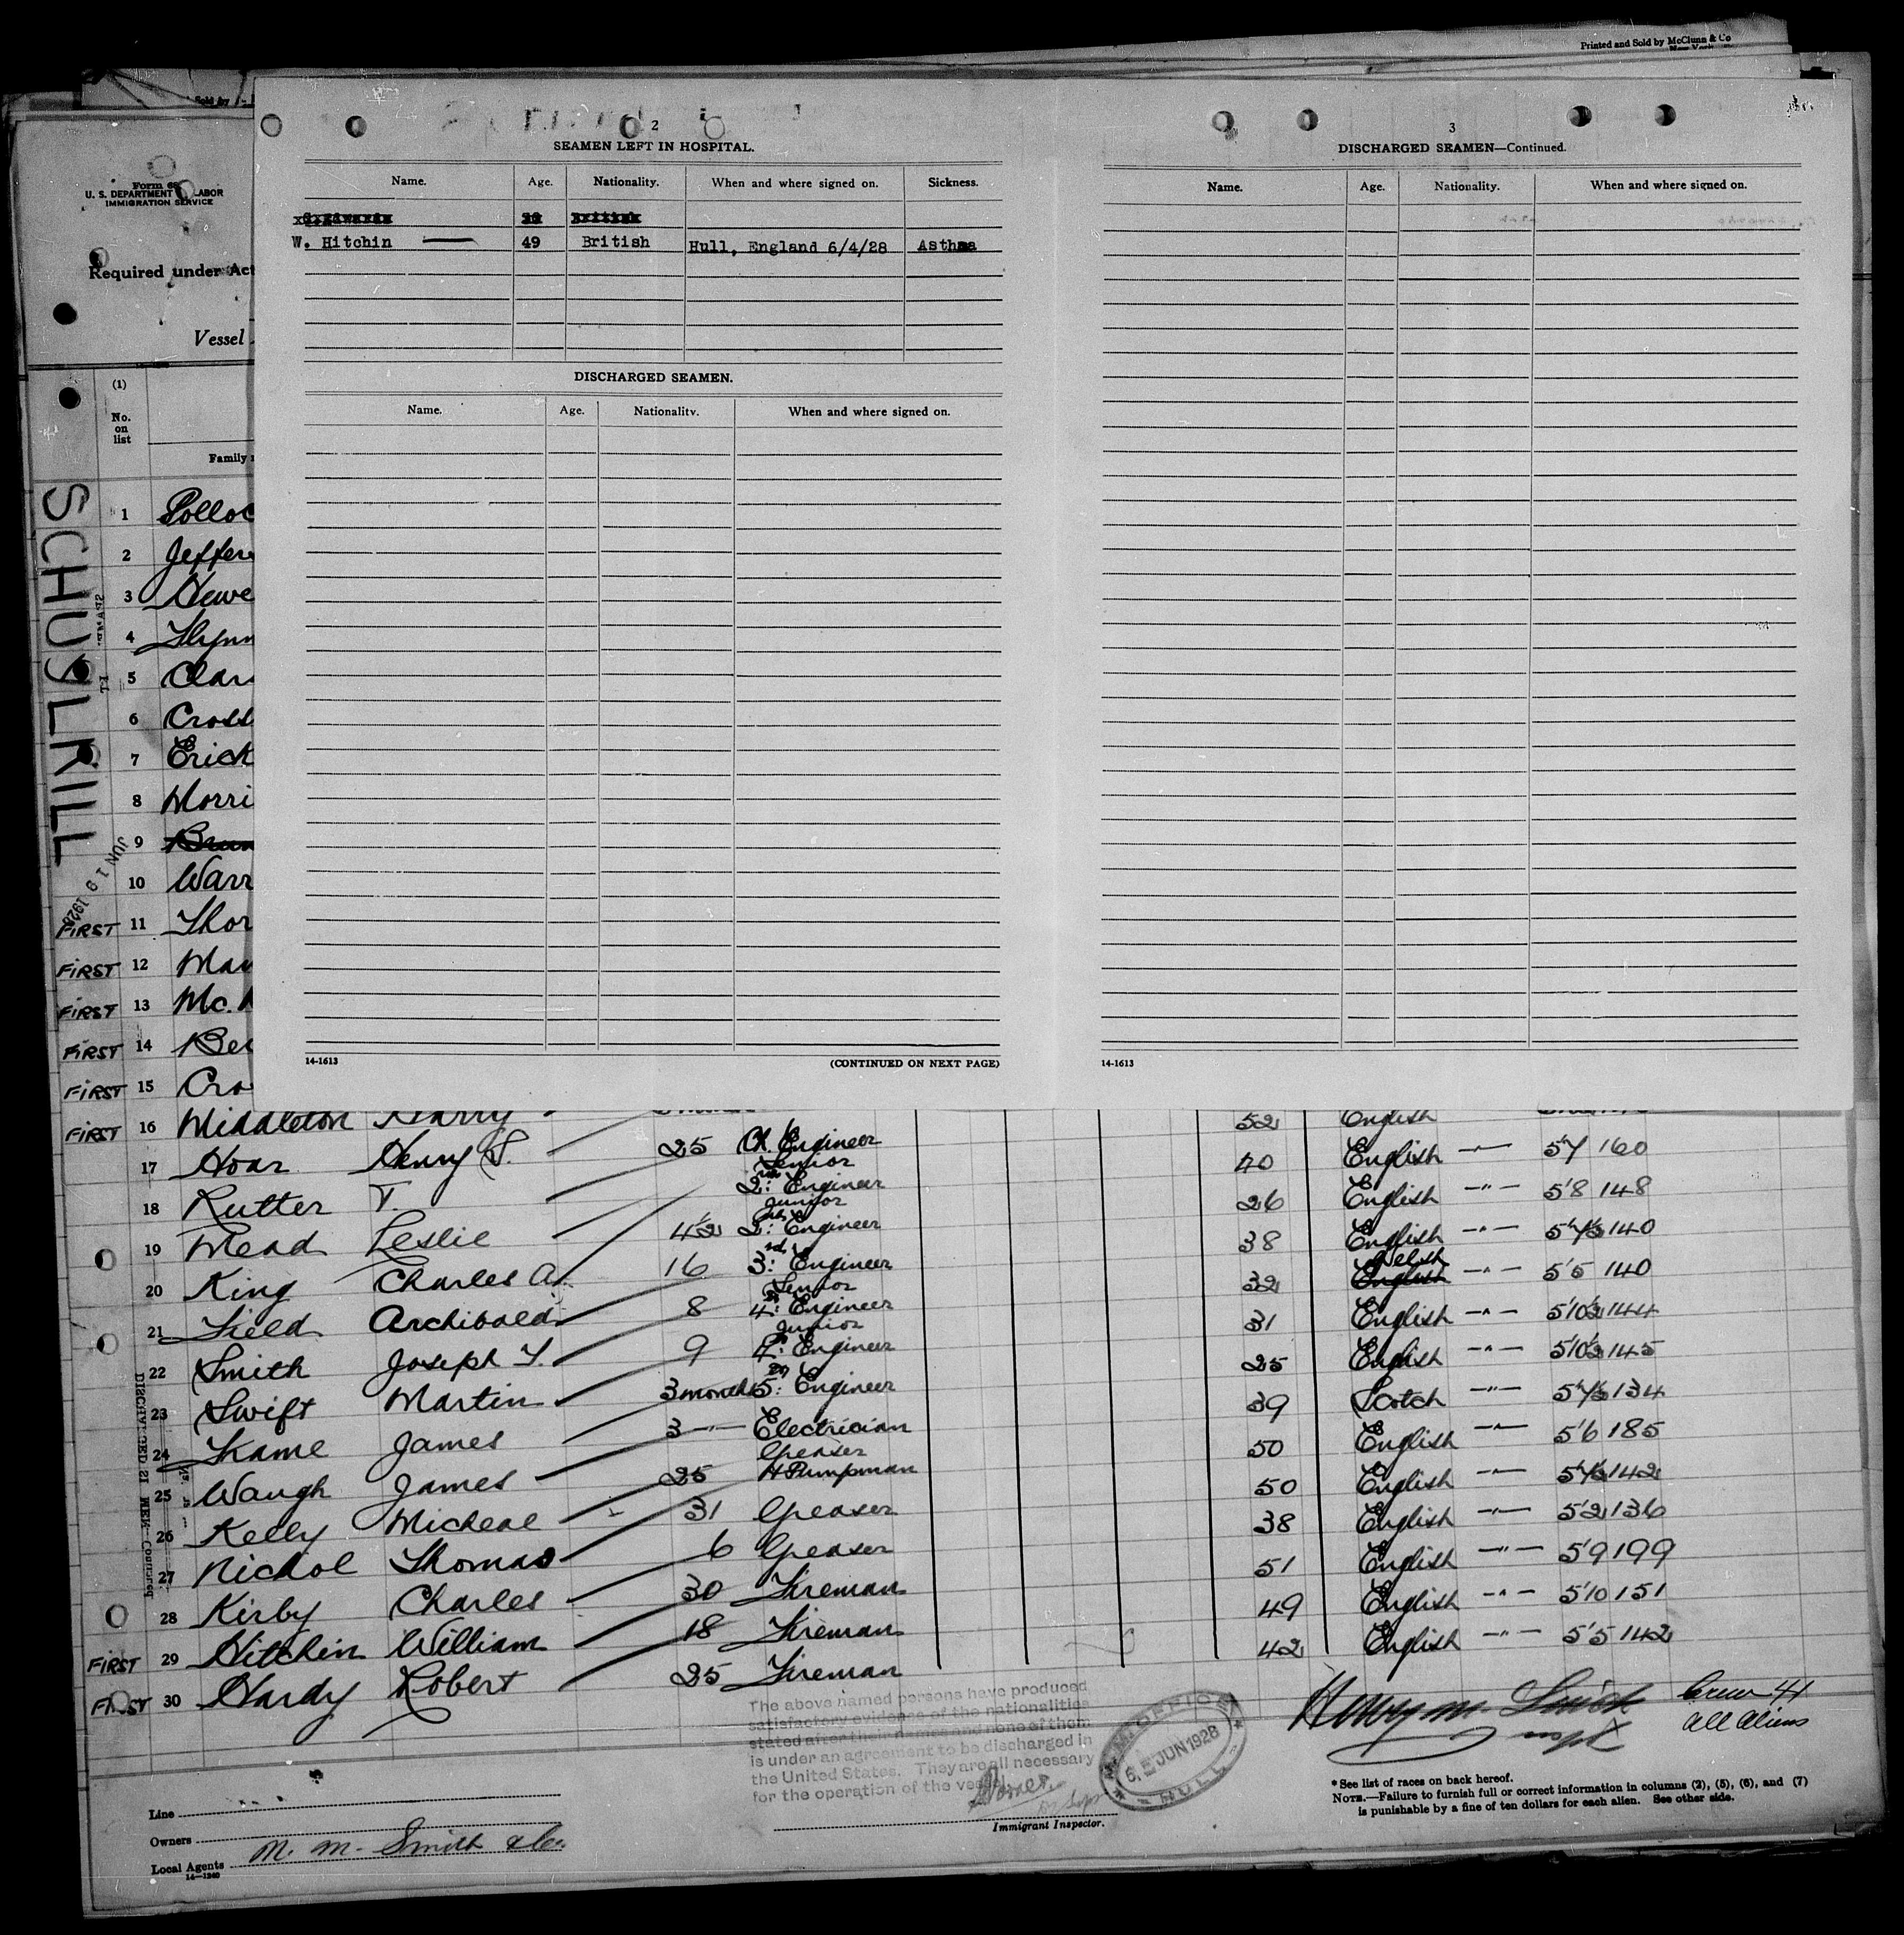 Printed and Sold by McClunn & Co
Sold by
2
SEAMEN LEFT IN HOSPITAL.
Name. Age. Nationality. When and where signed on. Sickness.
W. Hitchin 49 British Hull, England 6/4/28 Asthma
DISCHARGED SEAMEN.
Name. Age. Nationality. When and where signed on.
14-1613 (CONTINUED ON NEXT PAGE)
3
DISCHARGED SEAMEN—Continued.
Name. Age. Nationality. When and where signed on.
14-1613
U. S. DEPARTMENT LABOR
IMMIGRATION SERVICE
Required under Act
Vessel
(1)
No.
on
list
Family
SCHUYLRILL
JUN 19 1928
1 Polloc
2 Jeffer
3 Hewe
4 Flynn
5 Clar
6 Cross
7 Erick
8 Morri
9 Brun
10 Warr
FIRST 11 Thor
FIRST 12 Man
FIRST 13 Mc.
FIRST 14 Ber
FIRST 15 Cro
FIRST 16 Middleton Harry 52 English
17 Hoar Henry S. 25 Ch. Engineer 40 English 5'7 160
18 Rutter T. Senior 2nd Engineer 26 English -"- 5'8 148
19 Mead Leslie 4½ Junior 2nd Engineer 38 English -"- 5'7½ 140
20 King Charles A. 16 3rd Engineer 32 English Welsh -"- 5'5 140
21 Field Archibald 8 Senior 4th Engineer 31 English -"- 5'10½ 144
22 Smith Joseph Y. 9 Junior 4th Engineer 25 English -"- 5'10½ 145
23 Swift Martin 3 months 5th Engineer 39 Scotch -"- 5'7½ 134
24 Kame James 3 -"- Electrician 50 English -"- 5'6 185
25 Waugh James 25 Greaser & Pumpman 50 English -"- 5'7½ 142
26 Kelly Micheal 31 Greaser 38 English -"- 5'2 136
27 Nichol Thomas 6 Greaser 51 English -"- 5'9 199
28 Kirby Charles 30 Fireman 49 English -"- 5'10 151
FIRST 29 Hitchin William 18 Fireman 42 English -"- 5'5 142
FIRST 30 Hardy Robert 25 Fireman
The above named persons have produced
satisfactory evidence of the nationalities
stated after their names and none of them
is under an agreement to be discharged in
the United States. They are all necessary
for the operation of the vessel.
Immigrant Inspector.
M.M. OFFICE
6 JUN 1928
HULL
Henry M. Smith
Inspt
Crew 41
all aliens
* See list of races on back hereof.
NOTE.—Failure to furnish full or correct information in columns (2), (5), (6), and (7)
is punishable by a fine of ten dollars for each alien. See other side.
Line
Owners
Local Agents M. M. Smith & Co.
14—1240